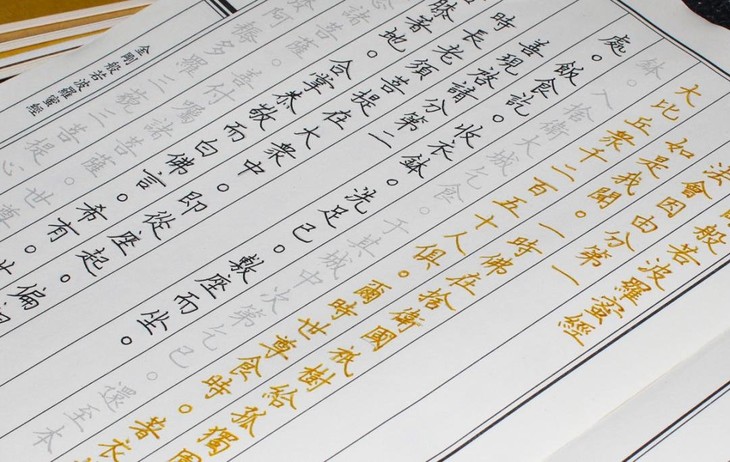 般若波羅蜜經
法會因由分第一
如是我聞。一時佛在捨衛國祇樹給孤獨園
大比丘衆千二百五十人俱。爾時世尊食時。著衣
鉢。入捨衛大城乞食。于其城中次第乞已。還至本
處。飯食訖。收衣鉢。洗足已。敷座而坐。
善現啓請分第二
時長老須菩提在大衆中。即從座起。偏
膝著地。合掌恭敬而白佛言。希有。世
諸菩薩。善付囑諸菩薩。世尊
發阿耨多羅三藐三菩提心
金剛般若波羅蜜經